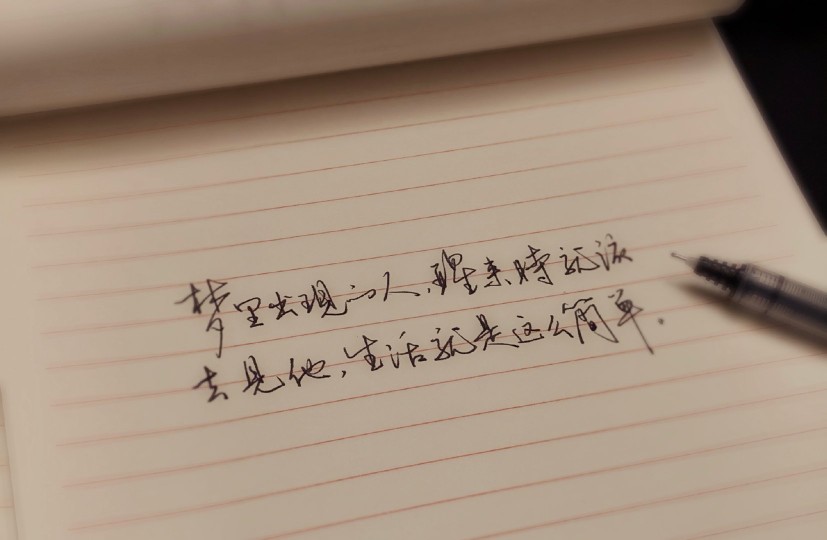 梦里出现的人,醒来时就该
去见他,生活就是这么简单.